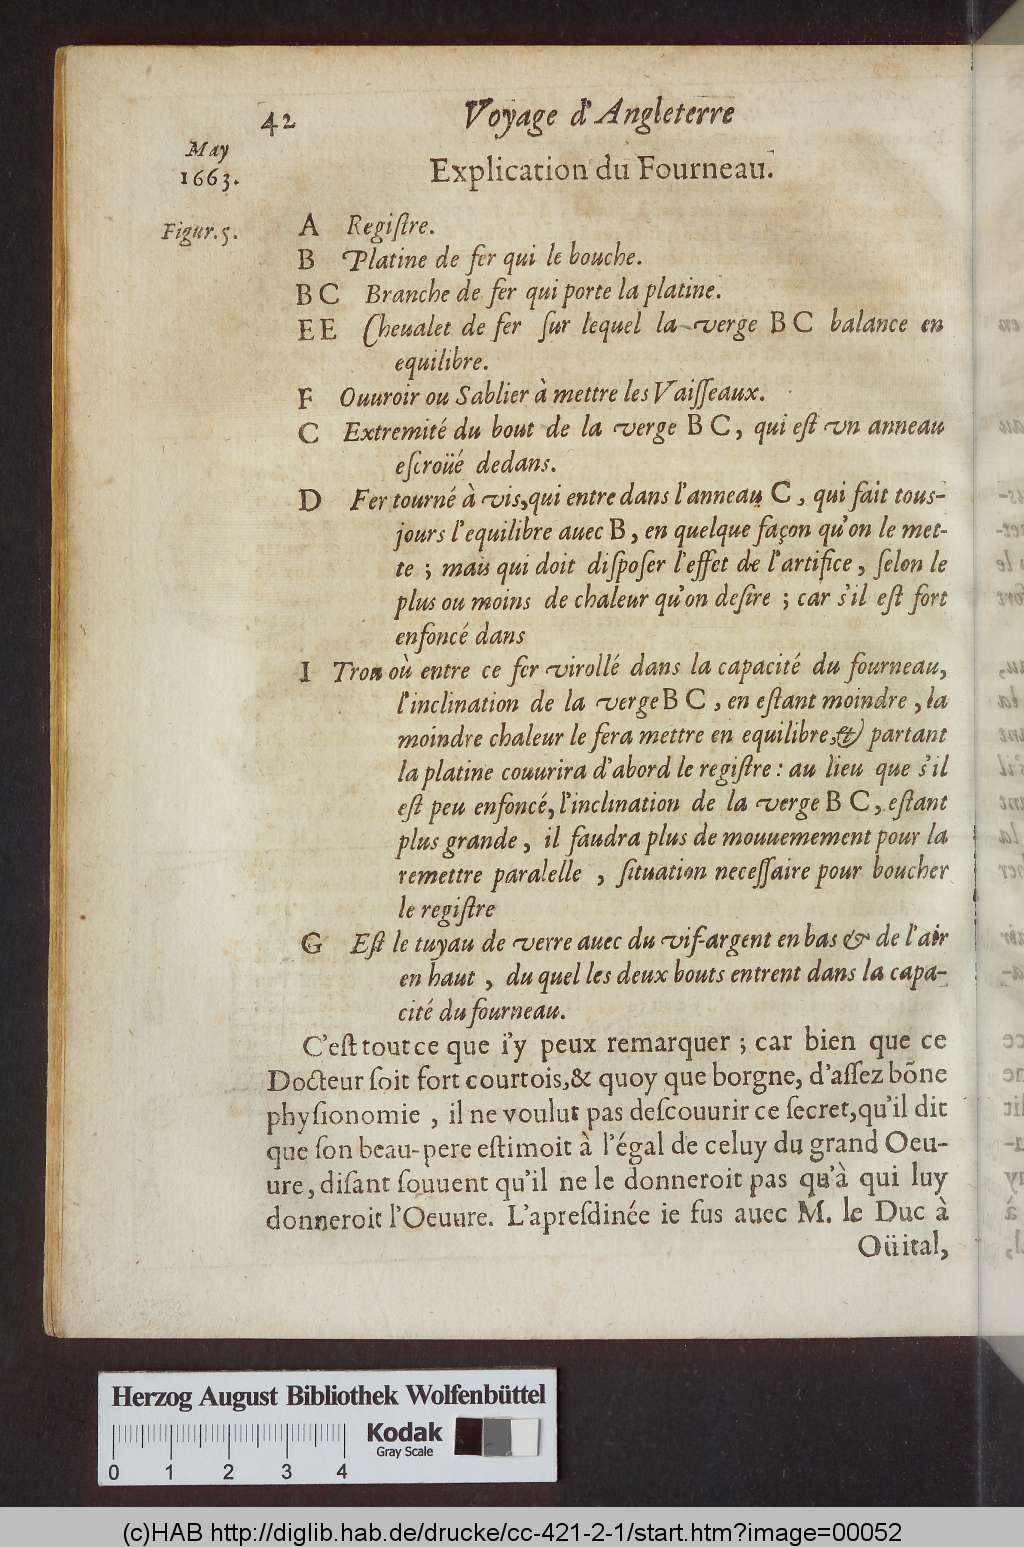 42 Voyage d'Angleterre
May
1663.
Explication du Fourneau.
Figur. 5.
A Regiſtre.
B Platine de fer qui le bouche.
B C Branche de fer qui porte la platine.
E E Cheualet de fer ſur lequel la verge B C balance en
equilibre.
F Ouuroir ou Sablier à mettre les Vaiſſeaux.
C Extremité du bout de la verge B C, qui eſt vn anneau
eſcroüé dedans.
D Fer tourné à vis, qui entre dans l'anneau C, qui fait tous-
jours l'equilibre auec B, en quelque façon qu'on le met-
te ; mais qui doit diſpoſer l'effet de l'artifice, ſelon le
plus ou moins de chaleur qu'on deſire ; car s'il eſt fort
enfoncé dans
I Trou où entre ce fer virollé dans la capacité du fourneau,
l'inclination de la verge B C, en eſtant moindre, la
moindre chaleur le fera mettre en equilibre, & partant
la platine couurira d'abord le regiſtre : au lieu que s'il
eſt peu enfoncé, l'inclination de la verge B C, eſtant
plus grande, il faudra plus de mouuemement pour la
remettre paralelle, ſituation neceſſaire pour boucher
le regiſtre
G Eſt le tuyau de verre auec du vif-argent en bas & de l'air
en haut, du quel les deux bouts entrent dans la capa-
cité du fourneau.
C'eſt tout ce que i'y peux remarquer ; car bien que ce
Docteur ſoit fort courtois, & quoy que borgne, d'aſſez bõne
phyſionomie, il ne voulut pas deſcouurir ce ſecret, qu'il dit
que ſon beau-pere eſtimoit à l'égal de celuy du grand Oeu-
ure, diſant ſouuent qu'il ne le donneroit pas qu'à qui luy
donneroit l'Oeuure. L'apreſdinée ie fus auec M. le Duc à
Oüital,
Herzog August Bibliothek Wolfenbüttel
Kodak
Gray Scale
0 1 2 3 4
(c)HAB http://diglib.hab.de/drucke/cc-421-2-1/start.htm?image=00052